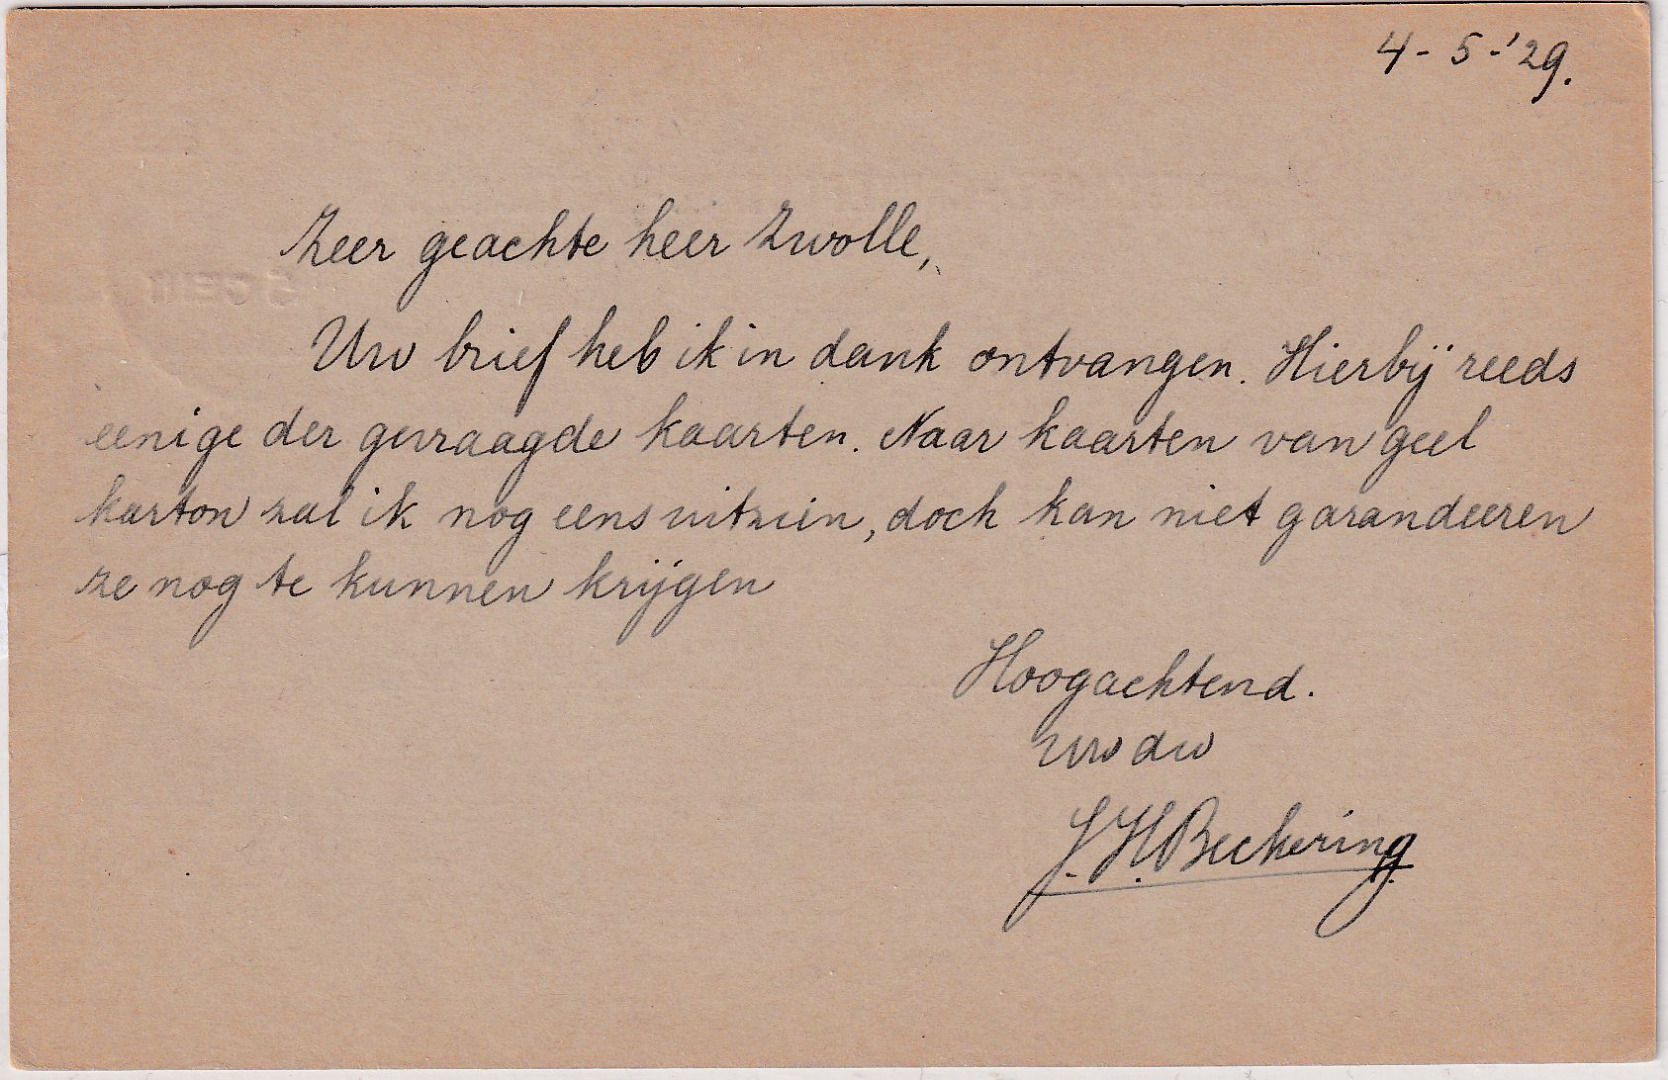 4-5-'29.
Zeer geachte heer Zwolle,
Uw brief heb ik in dank ontvangen. Hierbij reeds
eenige der gevraagde kaarten. Naar kaarten van geel
karton zal ik nog eens uitzien, doch kan niet garandeeren
ze nog te kunnen krijgen
Hoogachtend.
uw dw
J. H. Beckering